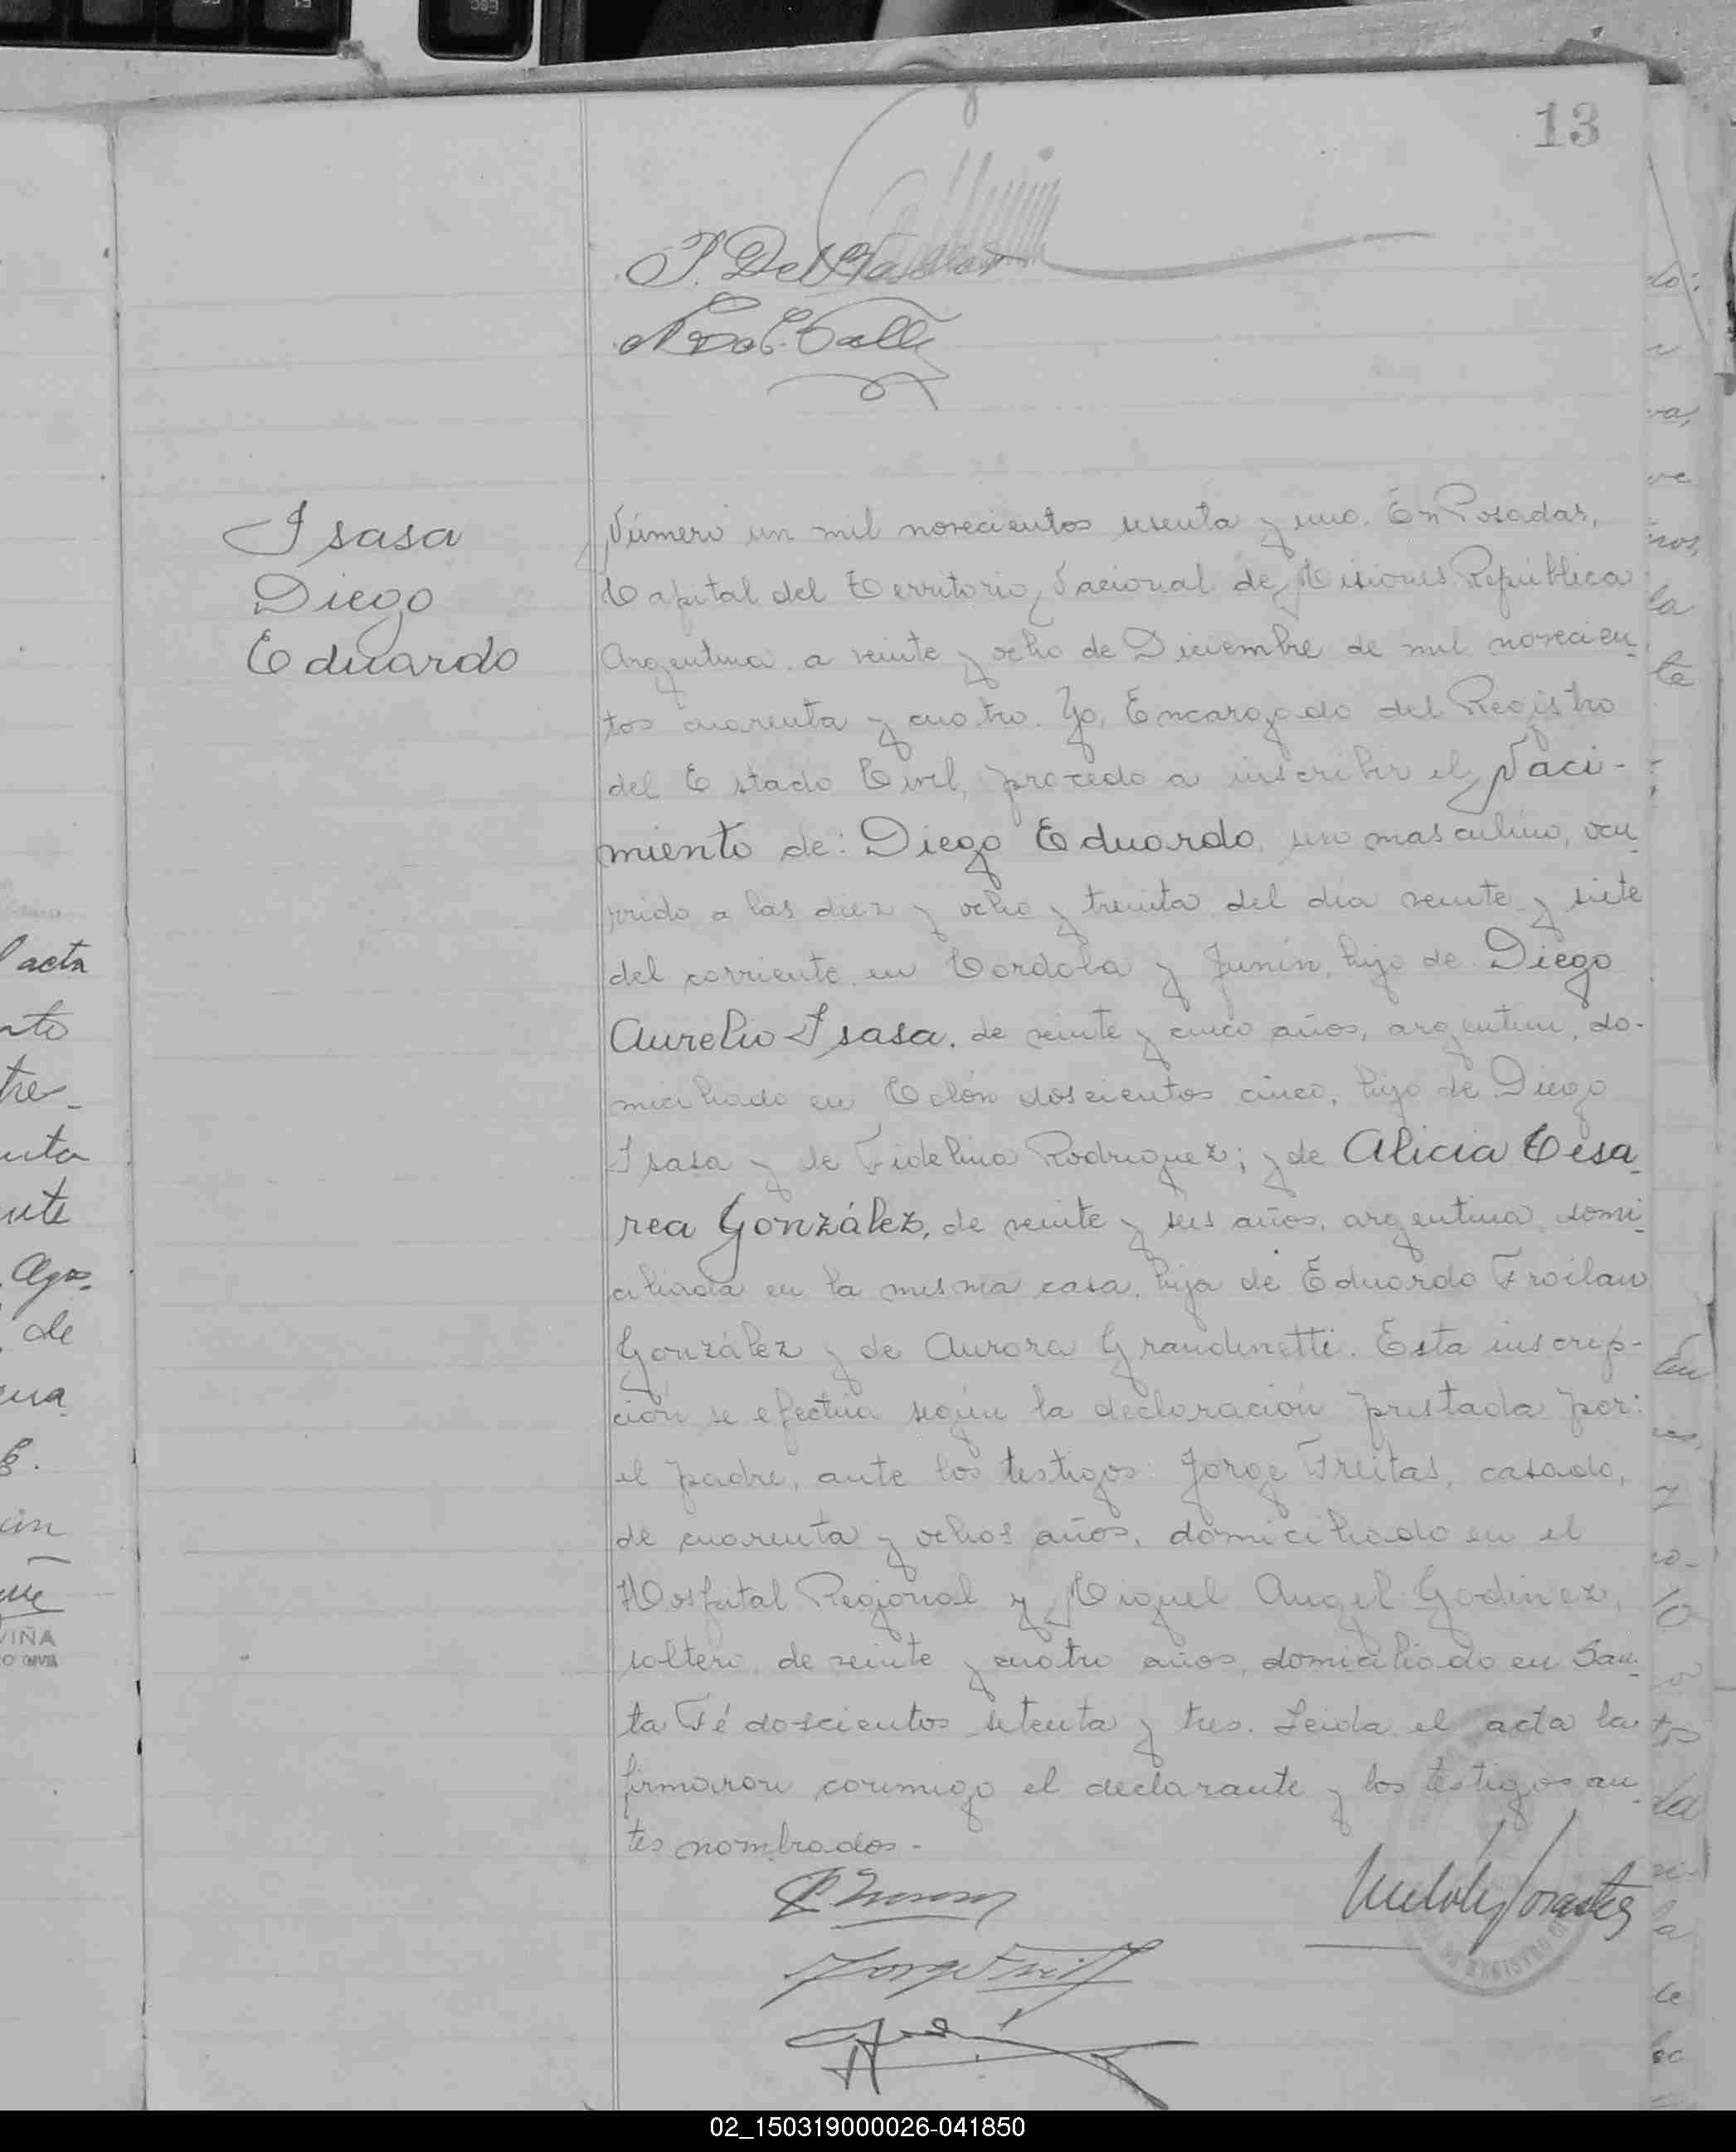 13
Isasa
Diego
Eduardo
Número un mil novecientos sesenta y uno. En Posadas,
Capital del Territorio Nacional de Misiones República
Argentina. a veinte y ocho de Diciembre de mil novecien-
tos cuarenta y cuatro. Yo, Encargado del Registro
del Estado Civil, procedo a inscribir el Naci-
miento de: Diego Eduardo, sexo masculino, ocu-
rrido a las diez y ocho y treinta del día veinte y siete
del corriente, en Cordoba y Junín, hijo de Diego
Aurelio Isasa, de veinte y cinco años, argentino, do-
miciliado en Colón doscientos cinco, hijo de Diego
Isasa y de Fidelina Rodriguez; y de Alicia Cesa-
rea González, de veinte y seis años, argentina, domi-
ciliada en la misma casa, hija de Eduardo Froilan
González y de Aurora Grandinetti. Esta inscrip-
ción se efectúa según la declaración prestada por:
el padre, ante los testigos: Jorge Freitas, casado,
de cuarenta y ochos años, domiciliado en el
Hospital Regional y Miguel Angel Godinez,
soltero, de veinte y cuatro años, domiciliado en San-
ta Fé doscientos setenta y tres. Leida el acta la
firmaron conmigo el declarante y los testigos an-
tes nombrados.-
acta
Ago-
de
02_150319000026-041850